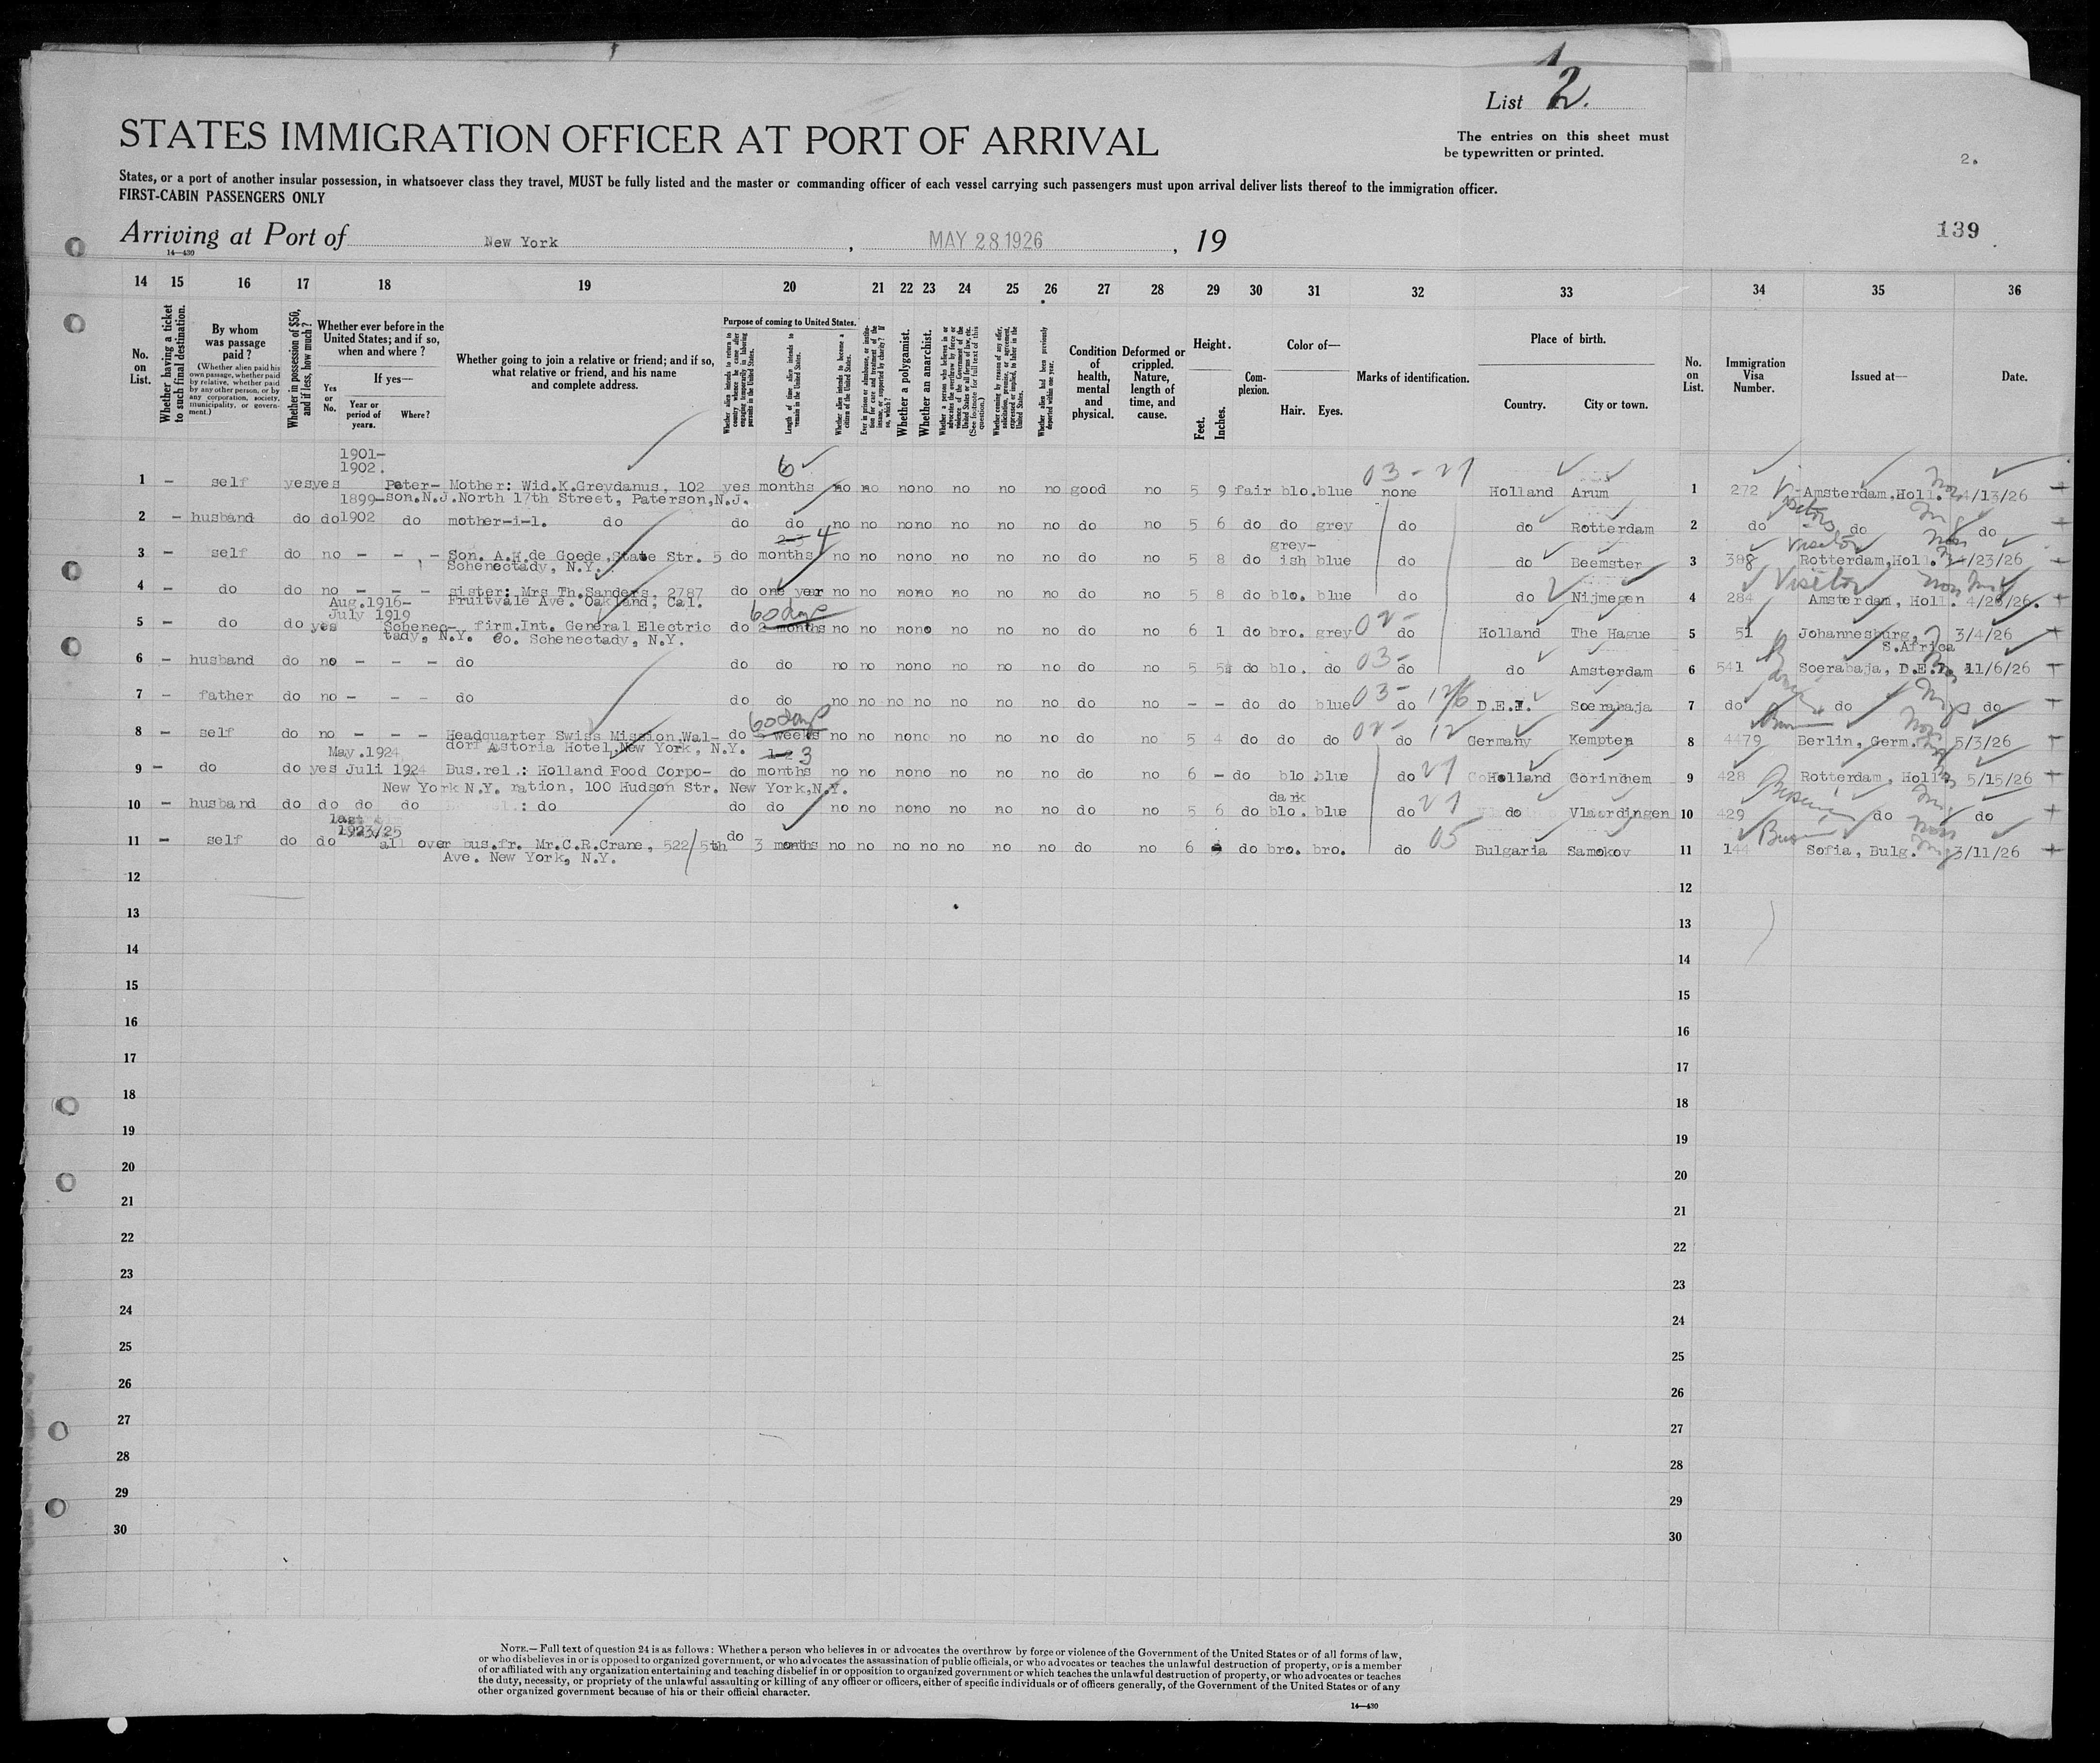 List 2.
The entries on this sheet must
be typewritten or printed.
2.
STATES IMMIGRATION OFFICER AT PORT OF ARRIVAL
States, or a port of another insular possession, in whatsoever class they travel, MUST be fully listed and the master or commanding officer of each vessel carrying such passengers must upon arrival deliver lists thereof to the immigration officer.
FIRST-CABIN PASSENGERS ONLY
139
Arriving at Port of New York , MAY 28 1926 , 19
14—430
14 15 16 17 18 19 20 21 22 23 24 25 26 27 28 29 30 31 32 33 34 35 36
No. on List.
Whether having a ticket to such final destination.
By whom was passage paid?
(Whether alien paid his own passage, whether paid by relative, whether paid by any other person, or by any corporation, society, municipality, or government.)
Whether in possession of $50, and if less, how much?
Whether ever before in the United States; and if so, when and where?
Yes or No.
If yes—
Year or period of years.
Where?
Whether going to join a relative or friend; and if so, what relative or friend, and his name and complete address.
Purpose of coming to United States.
Whether alien intends to return to country whence he came after engaging temporarily in laboring pursuits in the United States.
Length of time alien intends to remain in the United States.
Whether alien intends to become a citizen of the United States.
Ever in prison or almshouse, or institution for care and treatment of the insane, or supported by charity? If so, which?
Whether a polygamist.
Whether an anarchist.
Whether a person who believes in or advocates the overthrow by force or violence of the Government of the United States or all forms of law, etc. (See footnote for full text of this question.)
Whether coming by reason of any offer, solicitation, promise, or agreement, expressed or implied, to labor in the United States.
Whether alien had been previously deported within one year.
Condition of health, mental and physical.
Deformed or crippled. Nature, length of time, and cause.
Height.
Feet. Inches.
Complexion.
Color of—
Hair. Eyes.
Marks of identification.
Place of birth.
Country. City or town.
No. on List.
Immigration Visa Number.
Issued at—
Date.
1901–
1902. 6 03 - 27
1 – self yes yes Pater– Mother: Wid.K.Greydanus, 102 yes months no no no no no no no good no 5 9 fair blo. blue none Holland Arum 1 272 Amsterdam, Holl. 4/13/26
1899– son.N.J. North 17th Street, Paterson, N.J.
2 – husband do do 1902 do mother-i-l. do do do no no no no no no no do no 5 6 do do grey do do Rotterdam 2 do visitors do do
2-3 4 grey– Visitor
3 – self do no – – – Son. A.H.de Goede, State Str. 5 do months no no no no no no no do no 5 8 do ish blue do do Beemster 3 388 Rotterdam, Holl. 4/23/26
Schenectady, N.Y.
Visitor
4 – do do no – – – sister: Mrs Th.Sanders, 2787 do one year no no no no no no no do no 5 8 do blo. blue do do Nijmegen 4 284 Amsterdam, Holl. 4/26/26.
Aug.1916– Fruitvale Ave. Oakland, Cal.
July 1919 60 days 02 -
5 – do do yes Schenec– firm.Int. General Electric do 2 months no no no no no no no do no 6 1 do bro. grey do Holland The Hague 5 51 Johannesburg, 3/4/26
tady, N.Y. Co. Schenectady, N.Y. S.Africa
03 -
6 – husband do no – – – do do do no no no no no no no do no 5 5 do blo. do do do Amsterdam 6 541 Soerabaja, D.E.I. 11/6/26
03 - 12/6
7 – father do no – – – do do do no no no no no no no do no – – do do blue do D.E.I. Soerabaja 7 do do do
60 days 02 - 12
8 – self do no – – – Headquarter Swiss Mission, Wal– do weeks no no no no no no no do no 5 4 do do do do Germany Kempten 8 4479 Berlin, Germ. 5/3/26
May.1924 dorf Astoria Hotel, New York, N.Y. 1-2 3
9 – do do yes Juli 1924 Bus.rel.: Holland Food Corpo– do months no no no no no no no do no 6 – do blo. blue do 27 Holland Gorinchem 9 428 Rotterdam, Holl. 5/15/26
New York N.Y. ration, 100 Hudson Str. New York, N.Y.
dark
10 – husband do do do do : do do do no no no no no no no do no 5 6 do blo. blue do 27 do Vlaardingen 10 429 do do
last
1923/25 05
11 – self do do all over bus.fr. Mr.C.R.Crane, 522/5th do 3 months no no no no no no no do no 6 do bro. bro. do Bulgaria Samokov 11 144 Sofia, Bulg. 3/11/26
Ave. New York, N.Y.
12 12
13 13
14 14
15 15
16 16
17 17
18 18
19 19
20 20
21 21
22 22
23 23
24 24
25 25
26 26
27 27
28 28
29 29
30 30
NOTE.—Full text of question 24 is as follows: Whether a person who believes in or advocates the overthrow by force or violence of the Government of the United States or of all forms of law,
or who disbelieves in or is opposed to organized government, or who advocates the assassination of public officials, or who advocates or teaches the unlawful destruction of property, or is a member
of or affiliated with any organization entertaining and teaching disbelief in or opposition to organized government or which teaches the unlawful destruction of property, or who advocates or teaches
the duty, necessity, or propriety of the unlawful assaulting or killing of any officer or officers, either of specific individuals or of officers generally, of the Government of the United States or of any
other organized government because of his or their official character.
14—430